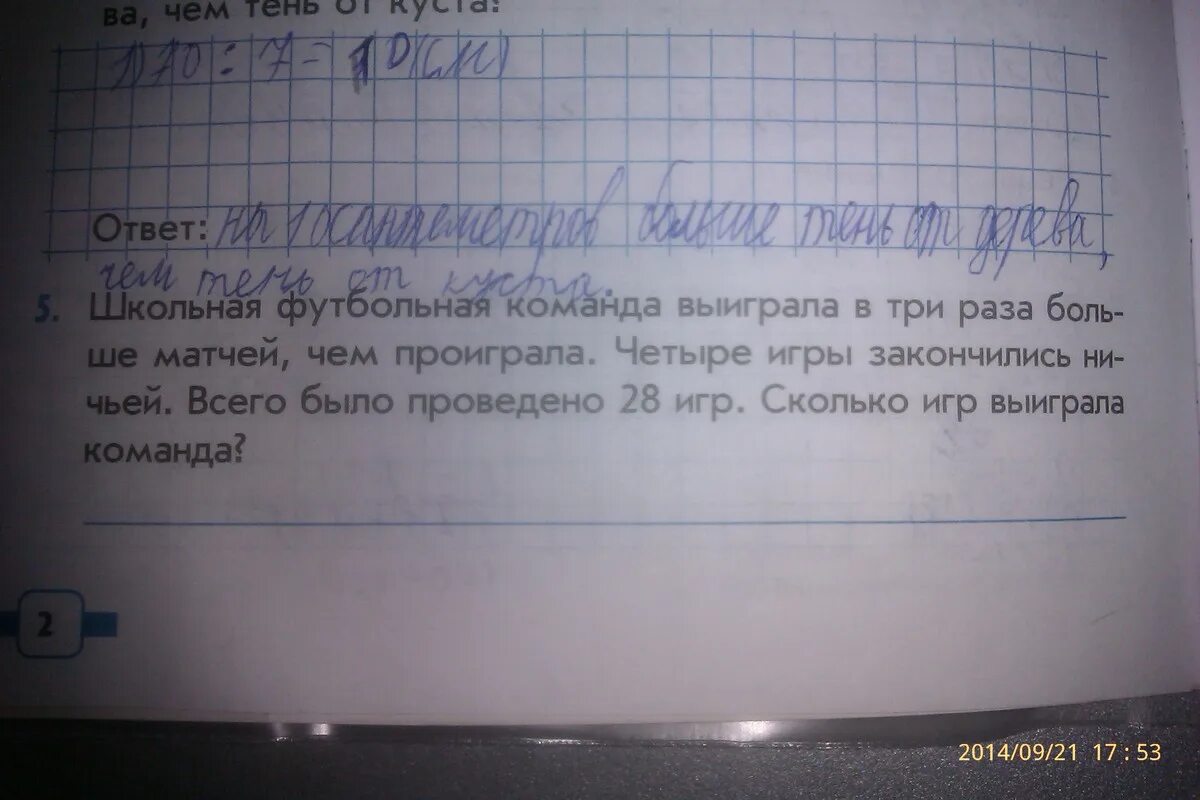 ва, чем тень от куста?
1) 70 : 7 = 10 (см)
Ответ: на 10 сантеметров больше тень от дерева,
чем тень от куста.
5. Школьная футбольная команда выиграла в три раза боль-
ше матчей, чем проиграла. Четыре игры закончились ни-
чьей. Всего было проведено 28 игр. Сколько игр выиграла
команда?
2
2014/09/21 17:53